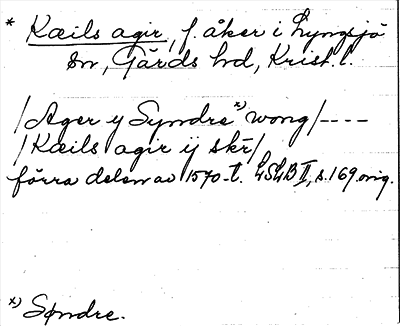 * Kæils agir, f. åker i Lyngsjö
sn, Gärds hd, Krist. l.
/Ager y Syndre *) wong/----
/Kæils agir ij skr̄/
förra delen av 1570-t. LSLB II, s. 169 orig.
*) Søndre.